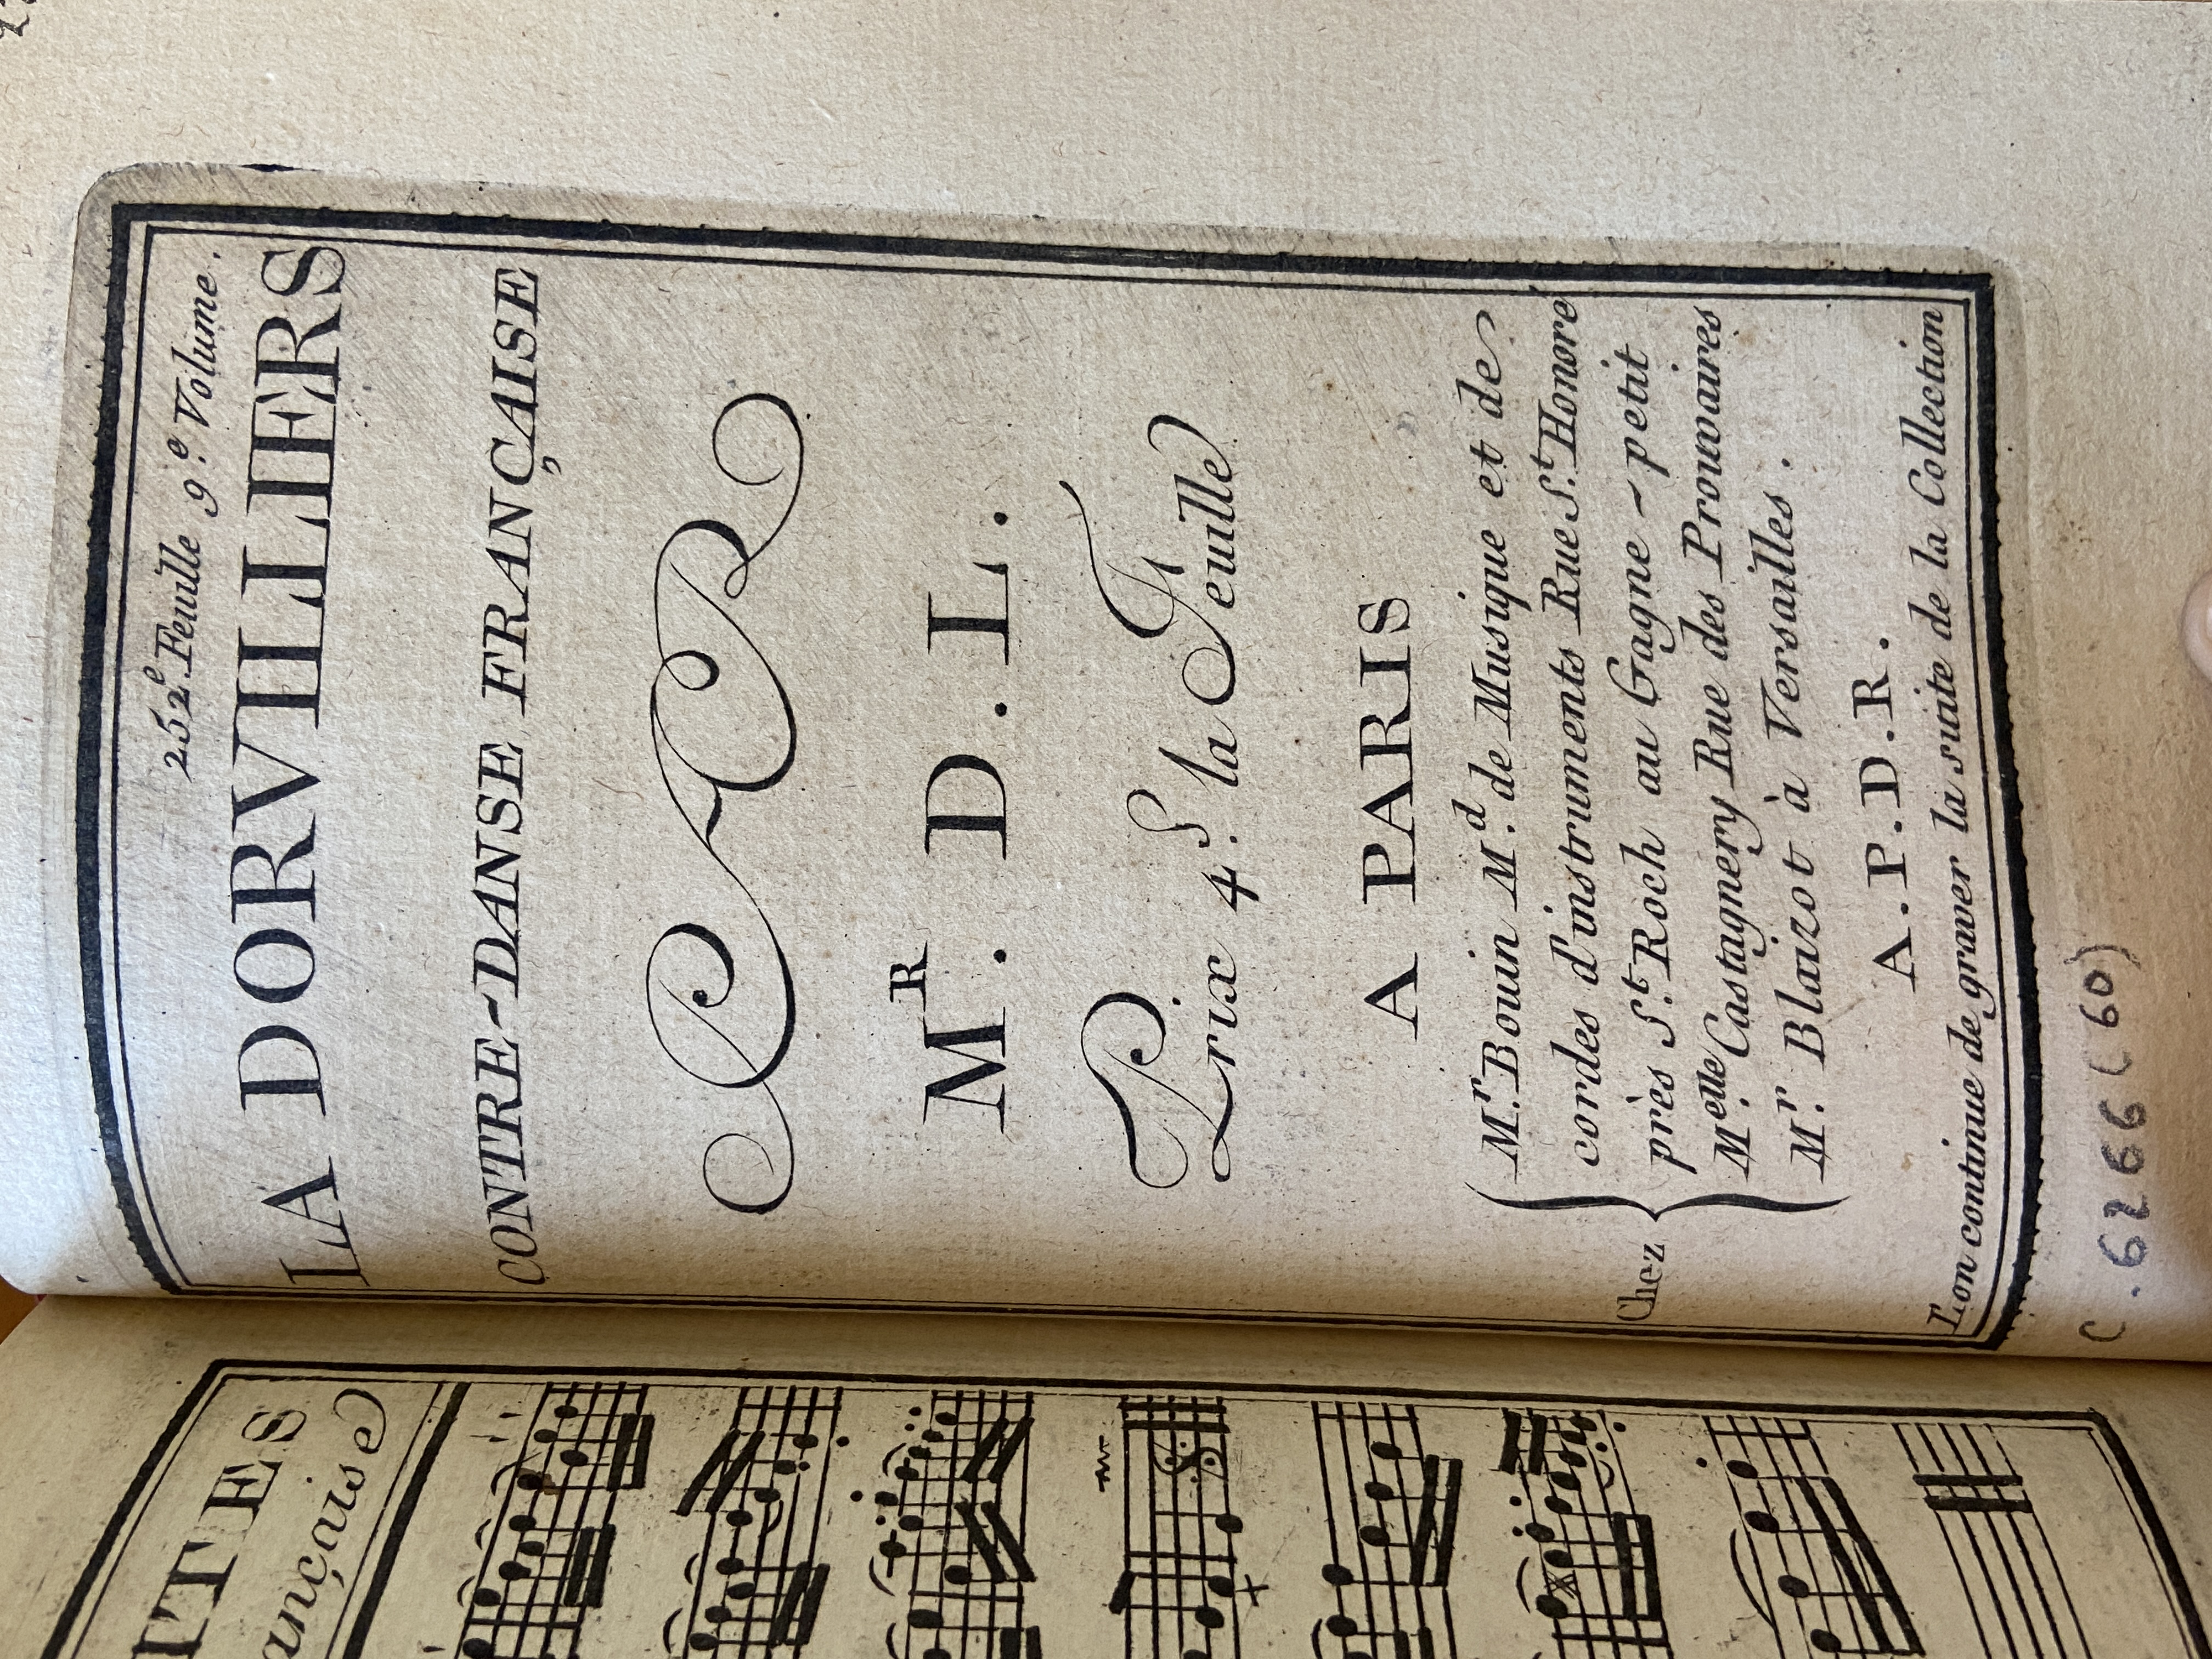 252.e Feuille 9.e Volume.
LA DORVILLIERS
CONTRE-DANSE FRANÇAISE
M.R D.L.
Prix 4.s la Feuille
A PARIS
Chez
M.r Bouin M.d de Musique et de
cordes d'instruments Rue S.t Honoré
près S.t Roch au Gagne-petit
M.elle Castagnery Rue des Prouvaires
M.r Blaizot à Versailles.
A.P.D.R.
L'on continue de graver la suite de la Collection
C.6266(60)
ITES
ançaise